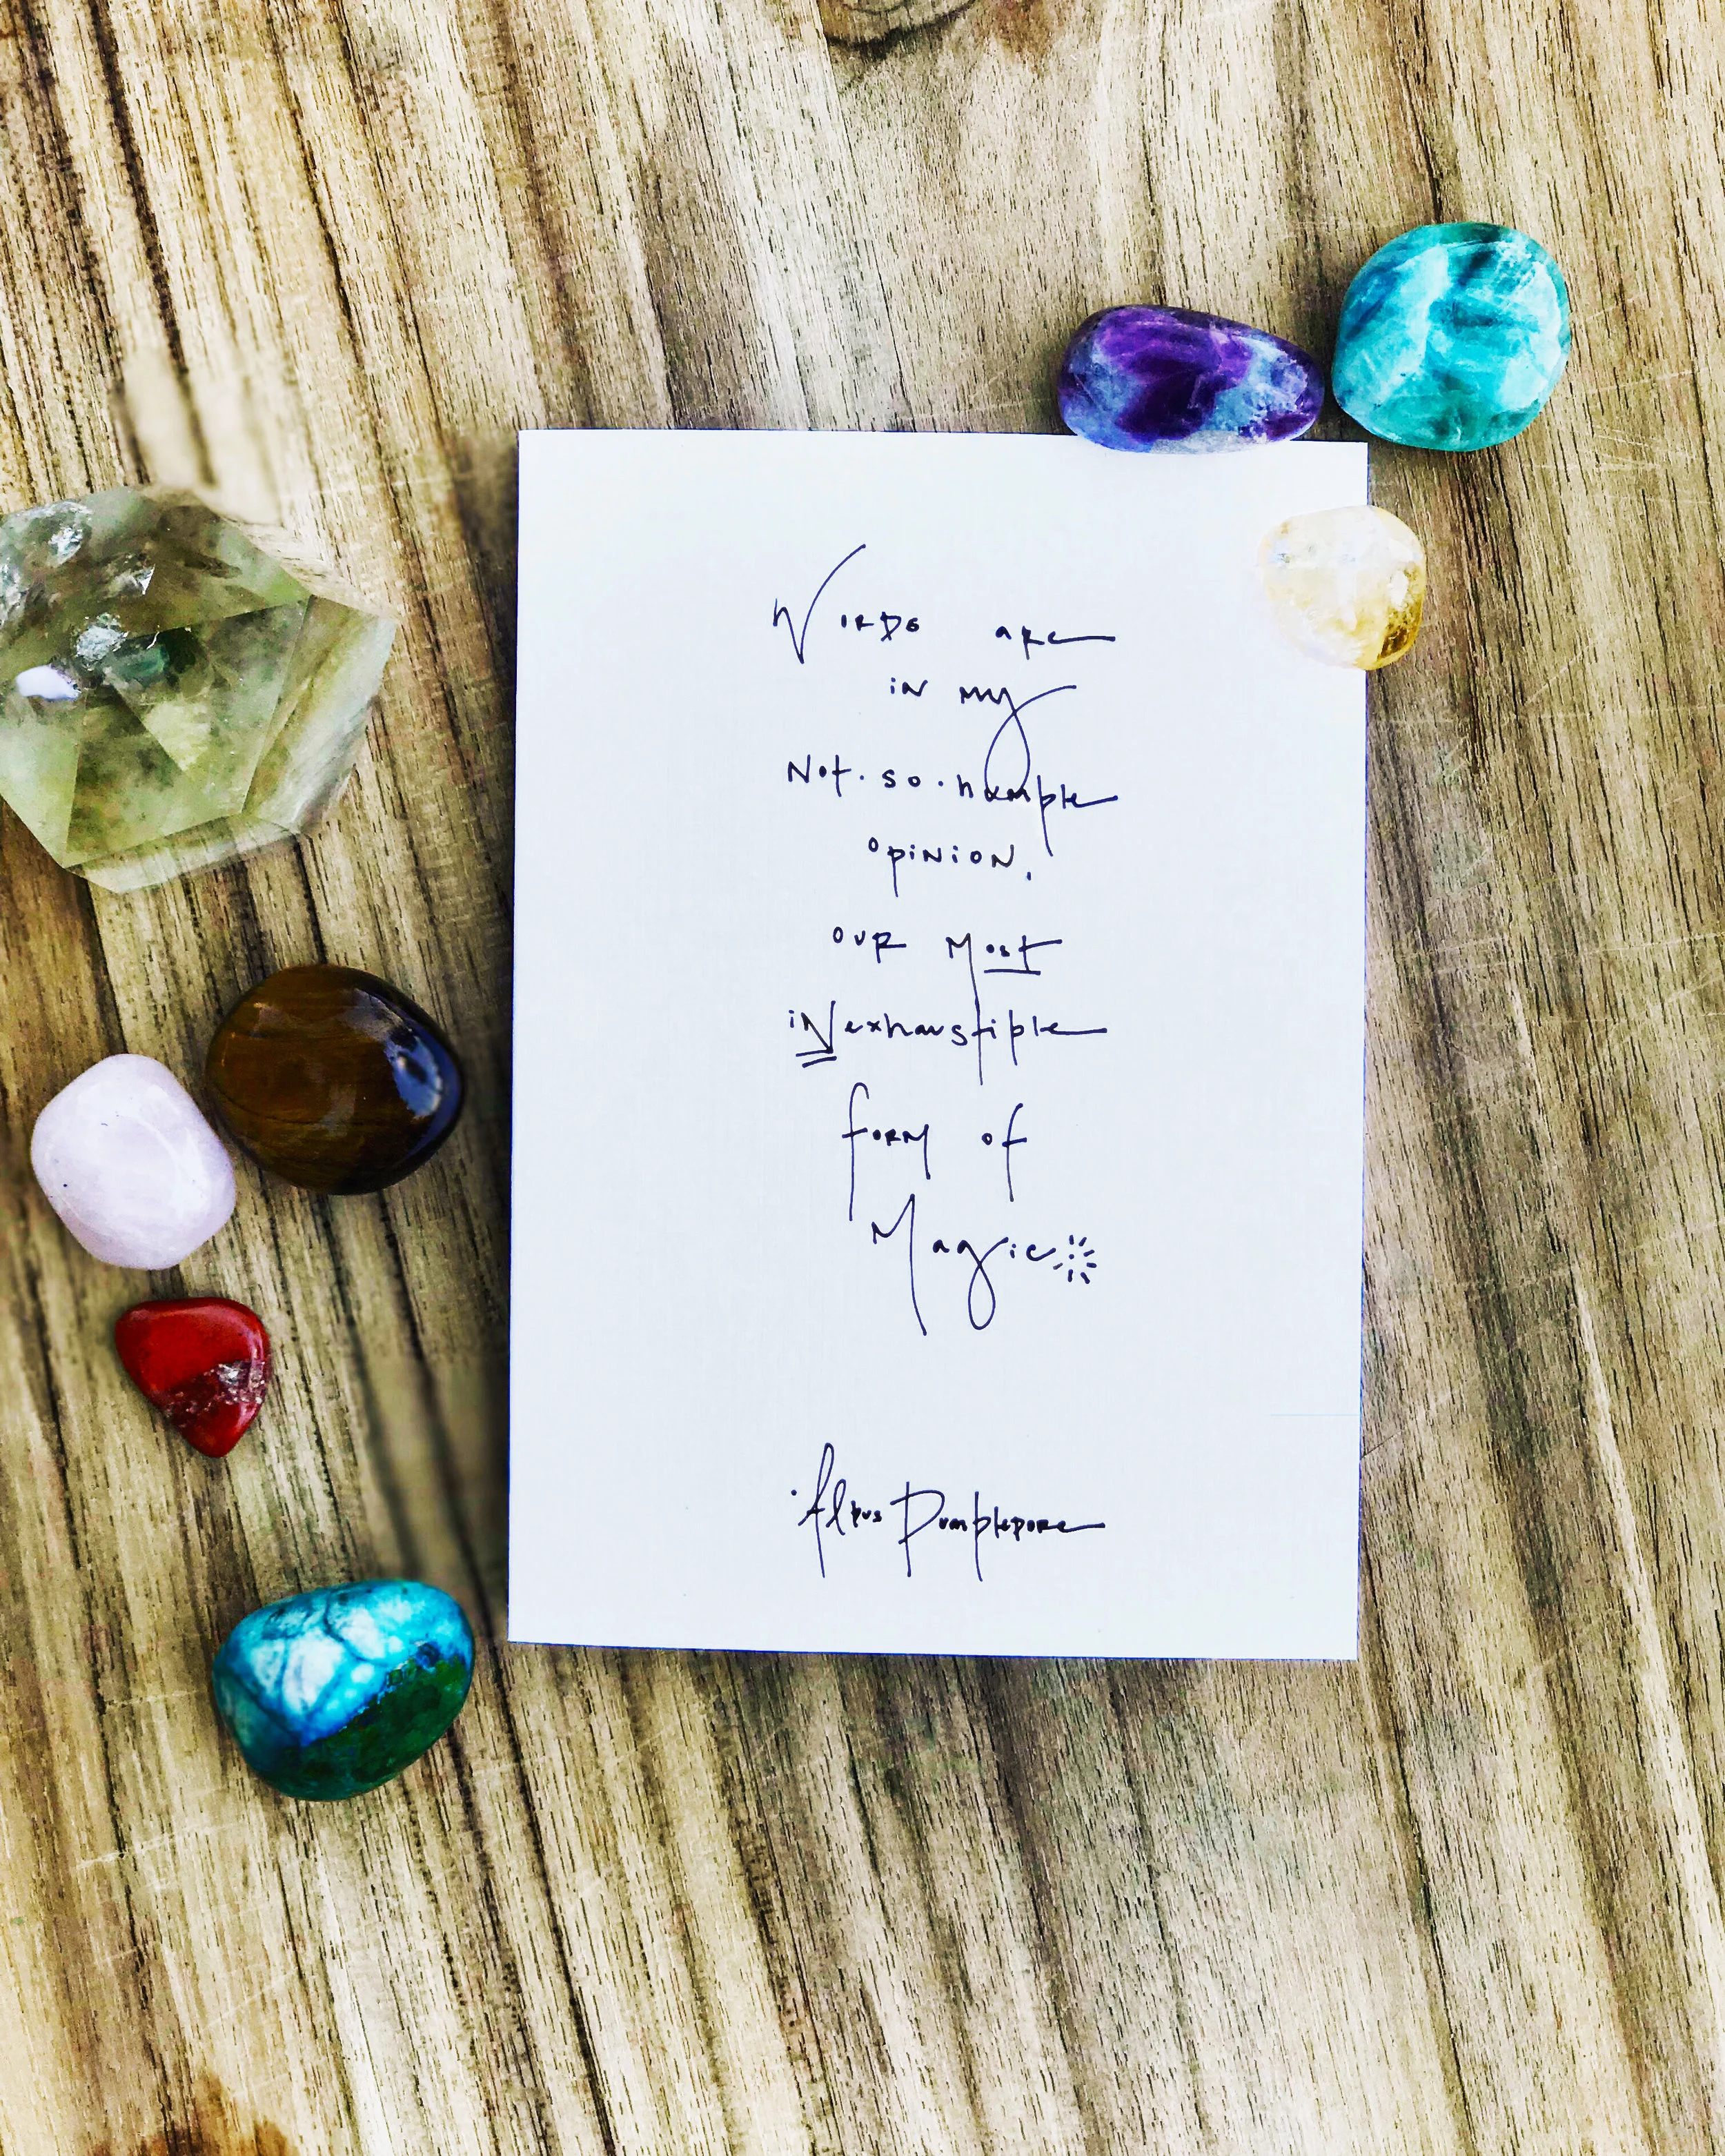 Words are
in my
Not.so.humble
opinion,
our Most
iNexhaustible
form of
Magic
Albus Dumbledore